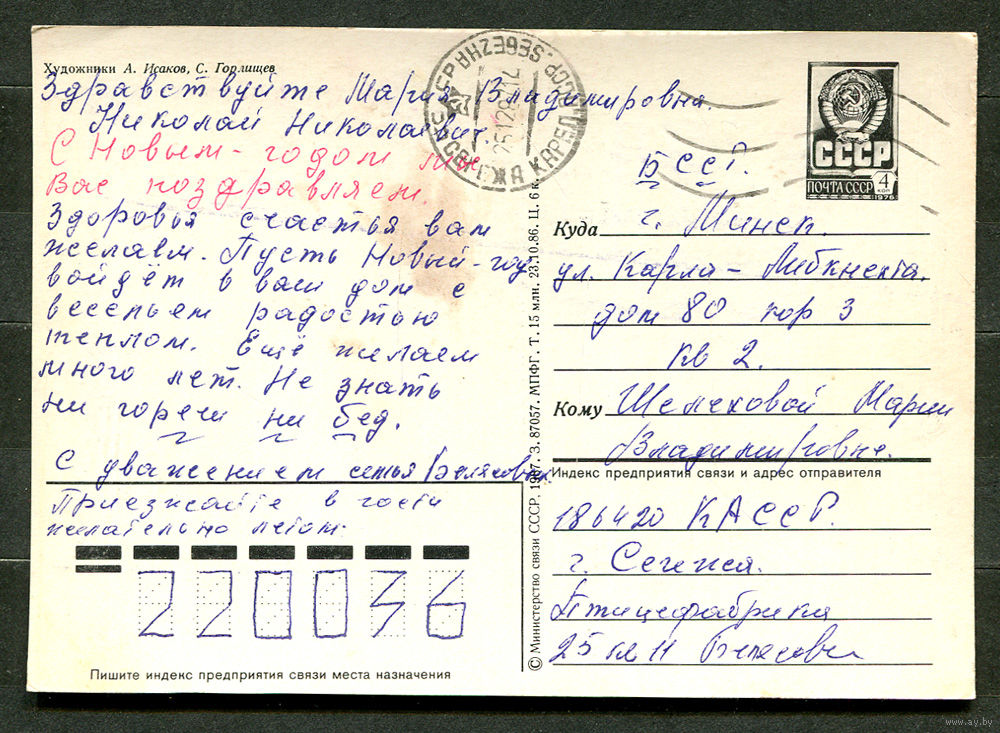 Художники А. Исаков, С. Горлищев
Здравствуйте Мария Владимировна.
Николай Николаевич.
С Новым-годом мы
Вас поздравляем.
Здоровья счастья вам
желаем. Пусть Новый-год
войдёт в ваш дом с
весельем радостью
теплом. Ещё желаем
много лет. Не знать
ни горечи ни бед.
С уважением семья
Приезжайте в гости
желательно летом.
220036
Пишите индекс предприятия связи места назначения
© Министерство связи СССР. 1987. З. 87057. МПФГ. Т. 15 млн. 23.10.86. Ц. 6 к.
SEGEZHA
СЕГЕЖА
СССР
ПОЧТА СССР
4
КОП
1976
БССР.
Куда г. Минск.
ул. Карла-Либкнехта.
дом 80 кор 3
кв 2.
Кому Шелеховой Марии
Владимировне.
Индекс предприятия связи и адрес отправителя
186420 КАССР.
г. Сегежа.
Птицефабрика
25 кв 11
www.ay.by